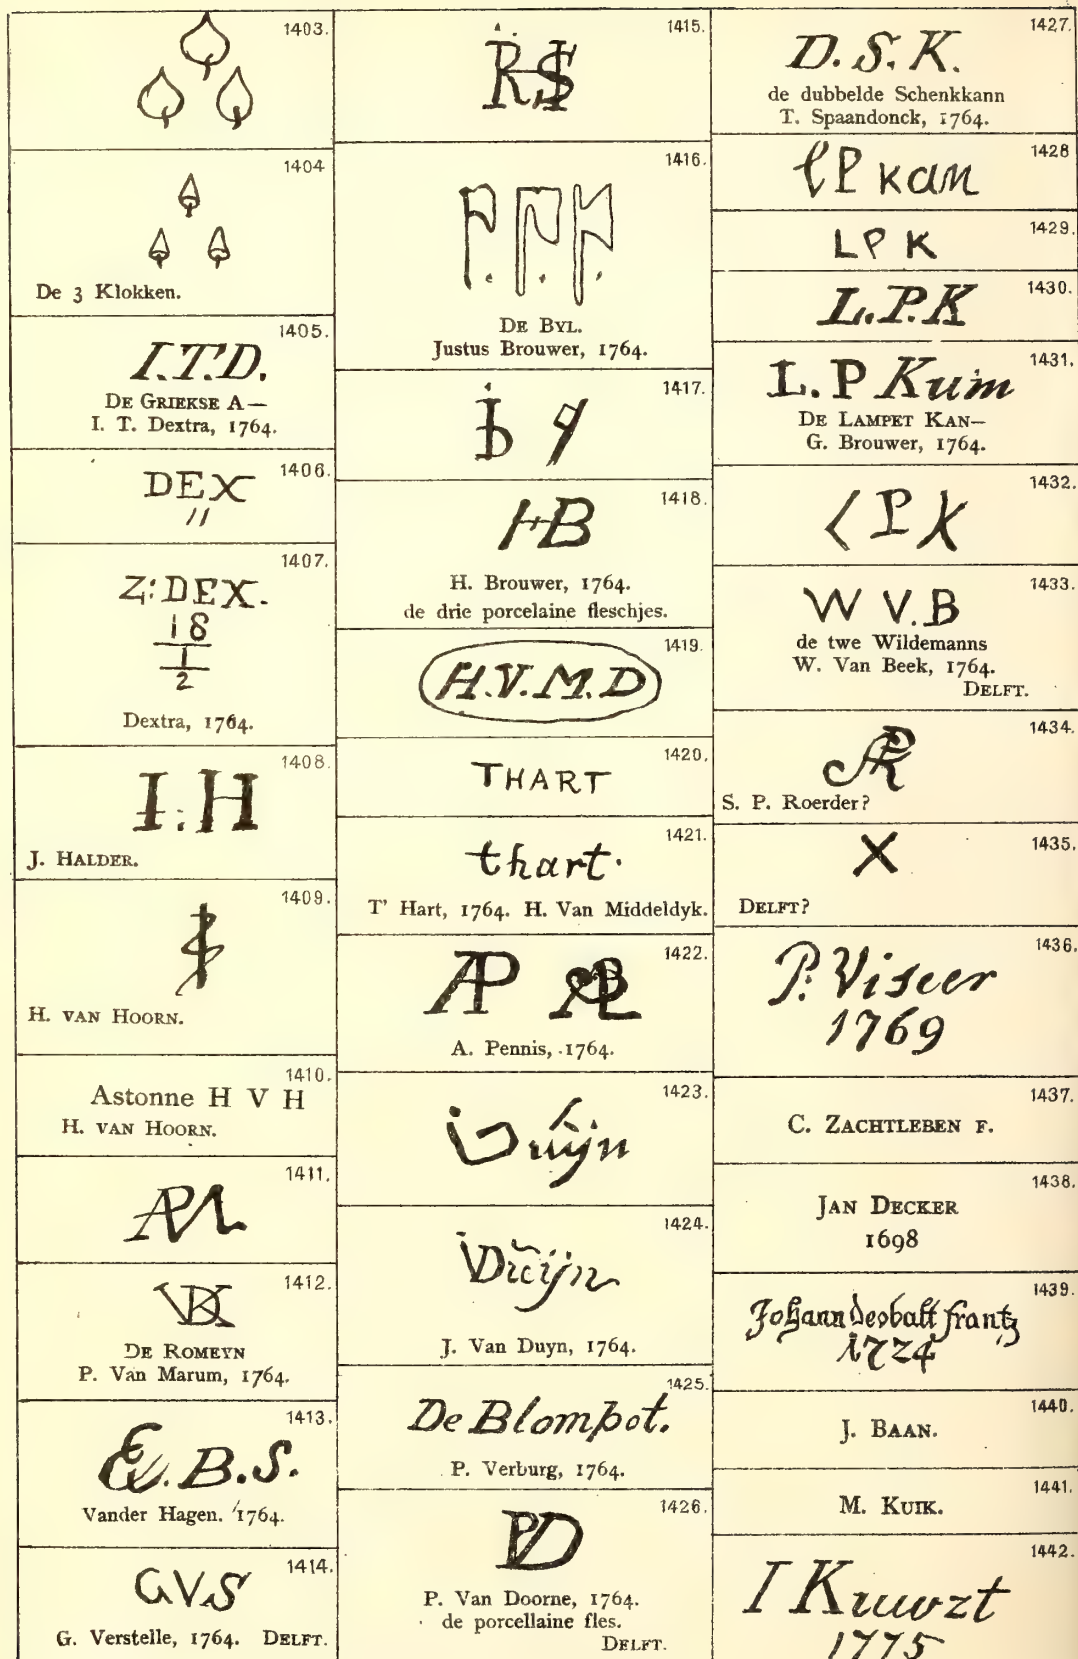 1403.
1404
De 3 Klokken.
1405.
I.T.D.
DE GRIEKSE A—
I. T. Dextra, 1764.
1406.
DEX
"
1407.
Z:DEX.
18
1
2
Dextra, 1764.
1408.
I:H
J. HALDER.
1409.
H. VAN HOORN.
1410.
Astonne H V H
H. VAN HOORN.
1411.
1412.
DE ROMEYN
P. Van Marum, 1764.
1413.
B.S.
Vander Hagen. 1764.
1414.
GVS
G. Verstelle, 1764. DELFT.
1415.
1416.
DE BYL.
Justus Brouwer, 1764.
1417.
1418.
HB
H. Brouwer, 1764.
de drie porcelaine fleschjes.
1419.
H.V.M.D
1420.
THART
1421.
thart.
T' Hart, 1764. H. Van Middeldyk.
1422.
AP
A. Pennis, 1764.
1423.
1424.
J. Van Duyn, 1764.
1425.
De Blompot.
P. Verburg, 1764.
1426.
P. Van Doorne, 1764.
de porcellaine fles.
DELFT.
1427.
D.S.K.
de dubbelde Schenkkann
T. Spaandonck, 1764.
1428
lP kan
1429.
LPK
1430.
L.P.K
1431.
L.P Kuim
DE LAMPET KAN—
G. Brouwer, 1764.
1432.
P K
1433.
W V.B
de twe Wildemanns
W. Van Beek, 1764.
DELFT.
1434.
S. P. Roerder?
1435.
X
DELFT?
1436.
P. Viseer
1769
1437.
C. ZACHTLEBEN F.
1438.
JAN DECKER
1698
1439.
Johann deobalt frantz
1724
1440.
J. BAAN.
1441.
M. KUIK.
1442.
1775